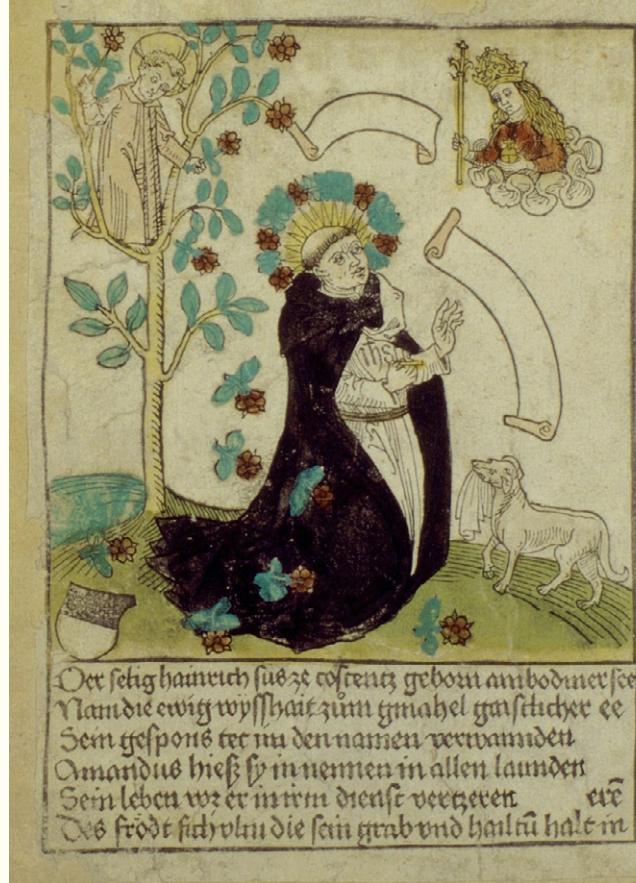 ihs
Der selig hainrich sus ze costentz geborn am bodmer see
Nam die ewig wysshait zům gmahel gaistlicher ee
Sein gespons tet im den namen verwannden
Amandus hieß sy in nennen in allen lannden
Sein leben wz er in irm dienst vertzeren
erē
Des frödt sich vlm die sein grab vnd hailtū halt in